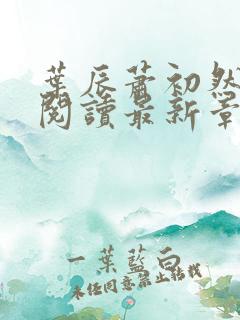 葉辰蕭初然
閱讀最新章
一葉藍白
未任同意禁止轉載